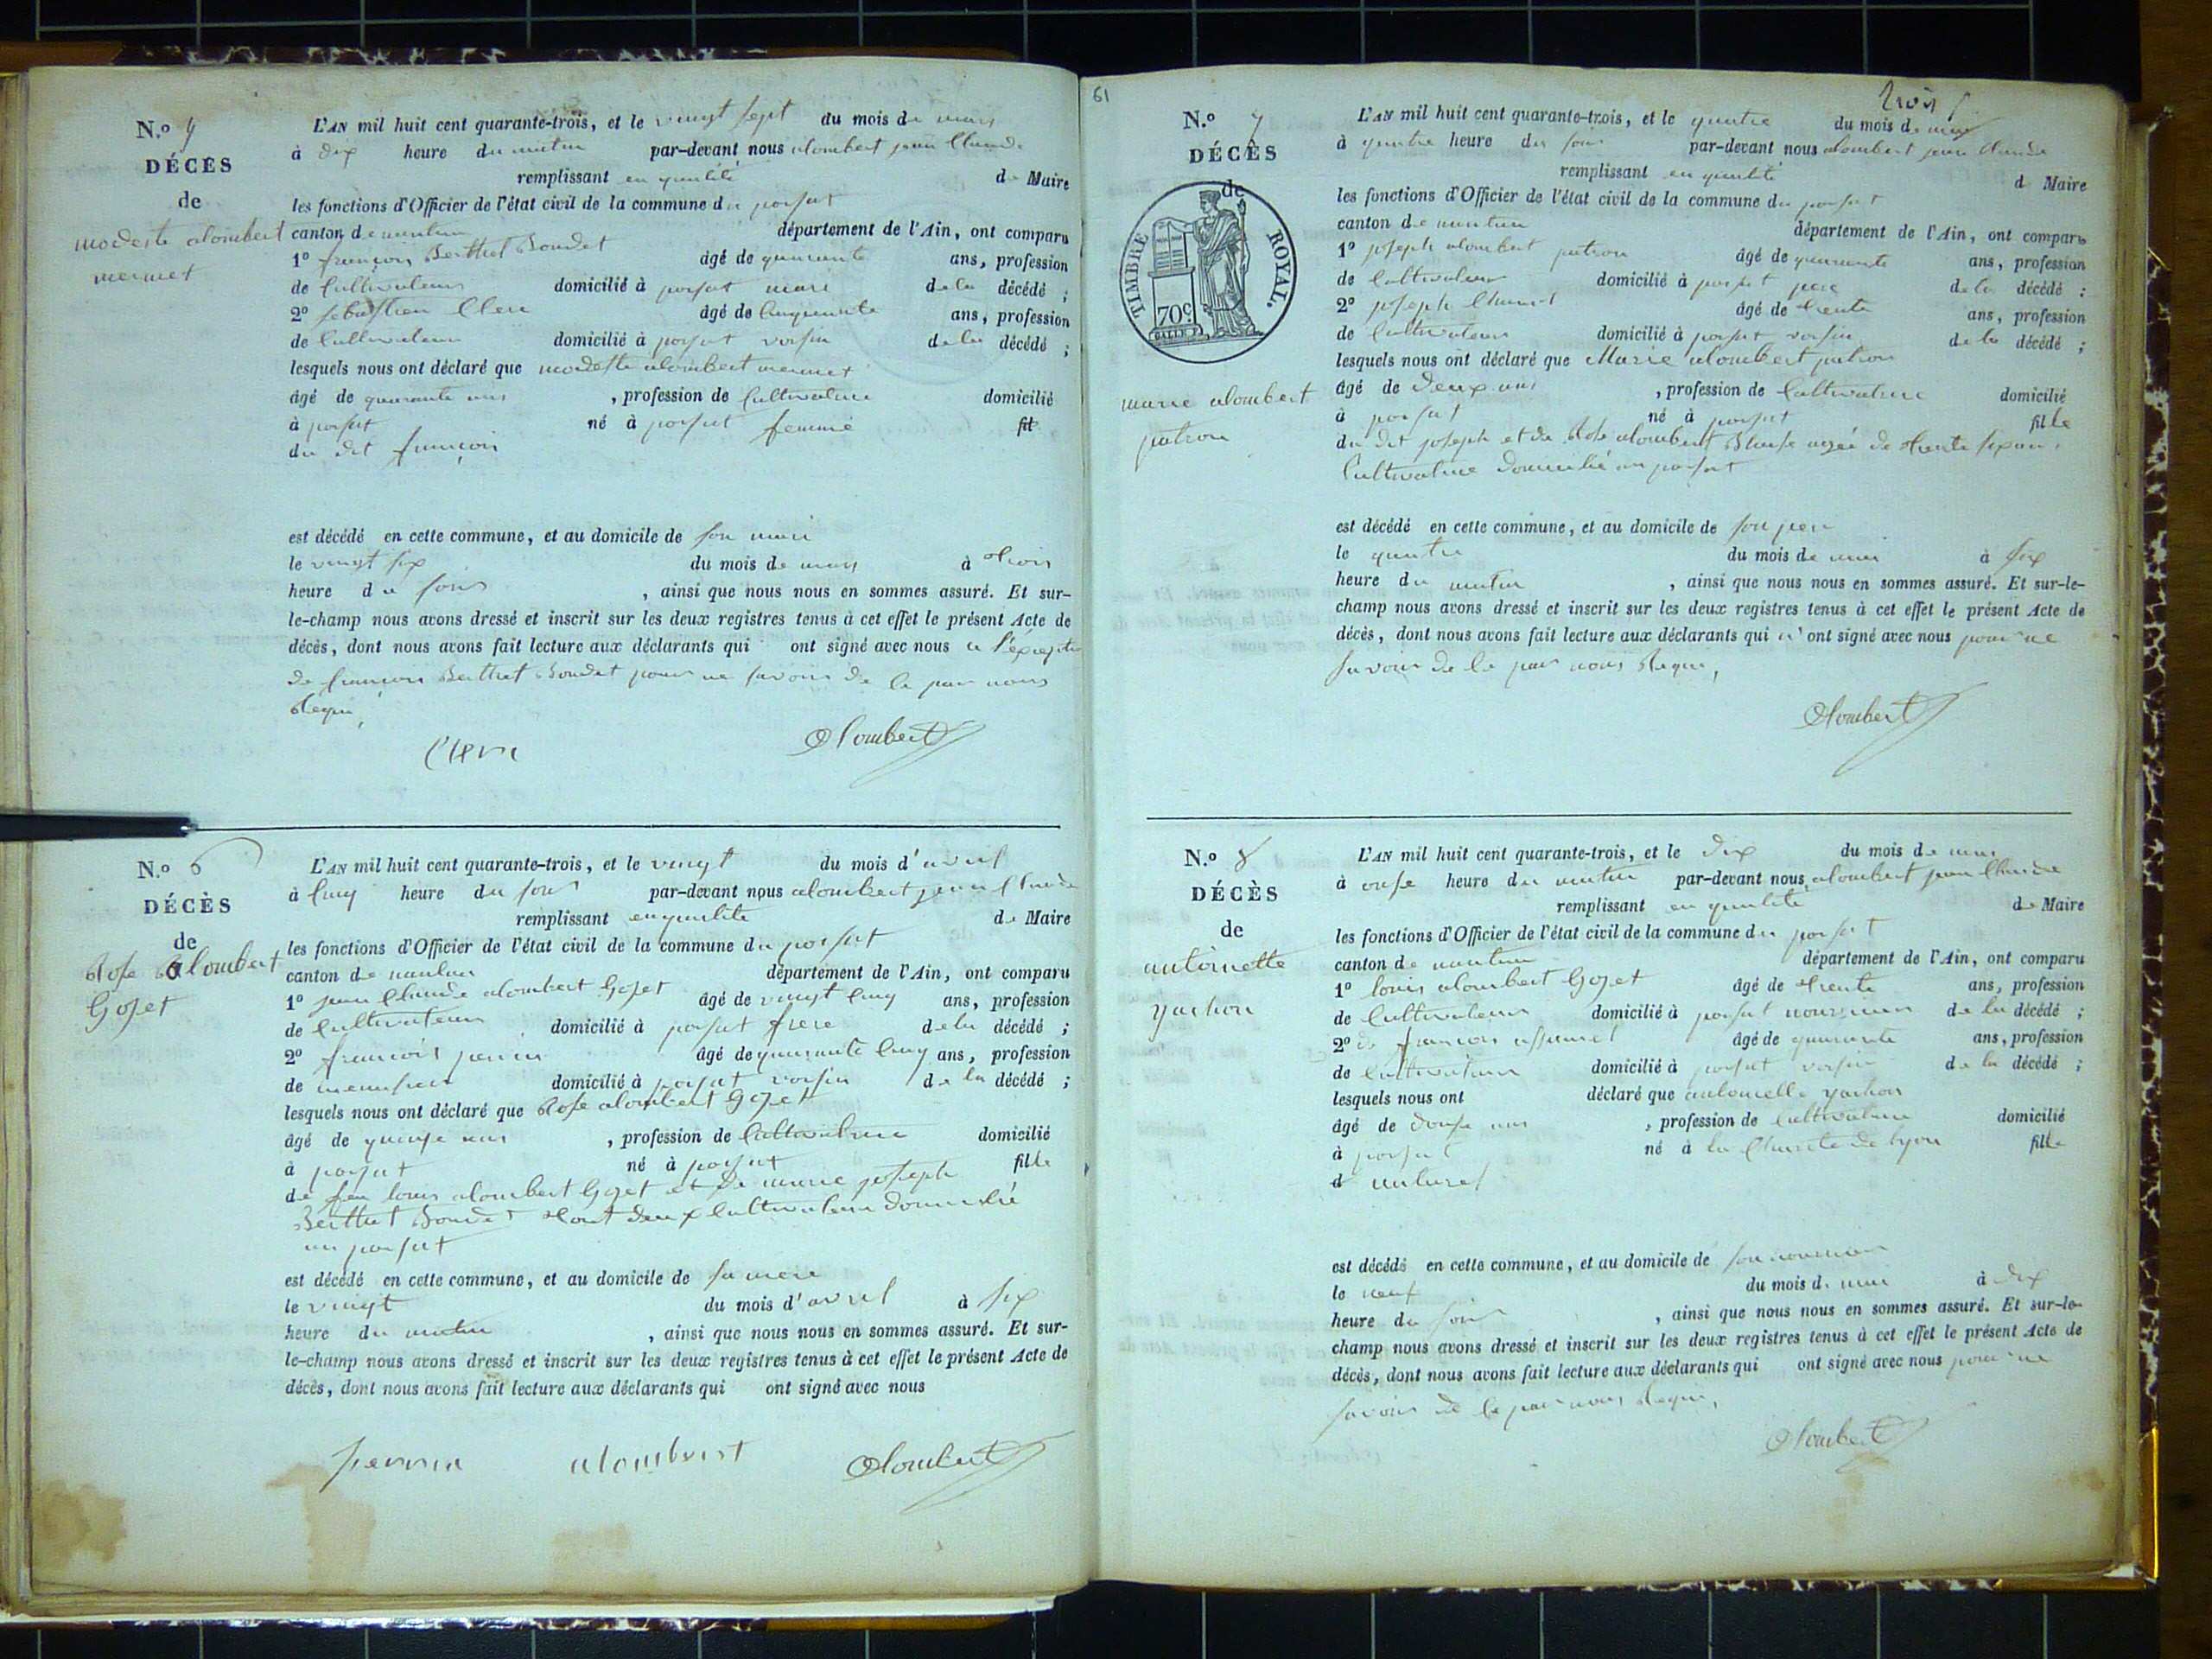 N.º
DÉCÈS
de
modeste alombert
mermet
L'AN mil huit cent quarante-trois, et le vingt sept du mois de mars
à dix heure du matin par-devant nous alombert jean Claude
remplissant en qualité de Maire
les fonctions d'Officier de l'état civil de la commune du porsat
canton de nantua département de l'Ain, ont comparu
1º françois Berthet Bondet âgé de quarante ans, profession
de Cultivateur domicilié à porsat mari de la décédé ;
2º sebastien Clerc âgé de Cinquante ans, profession
de Cultivateur domicilié à porsat voisin de la décédé ;
lesquels nous ont déclaré que modeste alombert mermet
âgé de quarante ans , profession de Cultivatrice domicilié
à porsat né à porsat femme fil
du dit françois
est décédé en cette commune, et au domicile de son mari
le vingt six du mois de mars à trois
heure du soir , ainsi que nous nous en sommes assuré. Et sur-
le-champ nous avons dressé et inscrit sur les deux registres tenus à cet effet le présent Acte de
décès, dont nous avons fait lecture aux déclarants qui ont signé avec nous a l'exception
de françois Berthet Bondet pour ne savoir de ce par nous
Requi,
Clerc Alombert
N.º 6
DÉCÈS
de
Rose Alombert
Gozet
L'AN mil huit cent quarante-trois, et le vingt du mois d'avril
à Cinq heure du soir par-devant nous alombert jean Claude
remplissant en qualité de Maire
les fonctions d'Officier de l'état civil de la commune du porsat
canton de nantua département de l'Ain, ont comparu
1º jean Claude alombert Gozet âgé de vingt Cinq ans, profession
de Cultivateur domicilié à porsat frere de la décédé ;
2º françois perrin âgé de quarante Cinq ans, profession
de menusier domicilié à porsat voisin de la décédé ;
lesquels nous ont déclaré que Rose alombert Gozet
âgé de quinze ans , profession de Cultivatrice domicilié
à porsat né à porsat fille
de feu louis alombert Gozet et de marie joseph
Berthet Bondet tout deux Cultivateur domicilié
au porsat
est décédé en cette commune, et au domicile de sa mere
le vingt du mois d'avril à six
heure du matin , ainsi que nous nous en sommes assuré. Et sur-
le-champ nous avons dressé et inscrit sur les deux registres tenus à cet effet le présent Acte de
décès, dont nous avons fait lecture aux déclarants qui ont signé avec nous
perrin alombert Alombert
61
trois
N.º 7
DÉCÈS
de
TIMBRE ROYAL.
70c.
marie alombert
patron
L'AN mil huit cent quarante-trois, et le quatre du mois de mai
à quatre heure du soir par-devant nous alombert jean Claude
remplissant en qualité d Maire
les fonctions d'Officier de l'état civil de la commune du porsat
canton de nantua département de l'Ain, ont comparu
1º joseph alombert patron âgé de quarante ans, profession
de Cultivateur domicilié à porsat pere de la décédé ;
2º joseph âgé de trente ans, profession
de Cultivateur domicilié à porsat voisin de la décédé ;
lesquels nous ont déclaré que Marie alombert patron
âgé de deux ans , profession de Cultivatrice domicilié
à porsat né à porsat fille
du dit joseph et de Rose alombert agée de trente six ans
Cultivatrice domicilié au porsat
est décédé en cette commune, et au domicile de son pere
le quatre du mois de mai à six
heure du matin , ainsi que nous nous en sommes assuré. Et sur-le-
champ nous avons dressé et inscrit sur les deux registres tenus à cet effet le présent Acte de
décès, dont nous avons fait lecture aux déclarants qui n'ont signé avec nous pour ne
savoir de ce par nous Requi,
Alombert
N.º 8
DÉCÈS
de
antoinette
yachon
L'AN mil huit cent quarante-trois, et le dix du mois de mai
à onse heure du matin par-devant nous alombert jean Claude
remplissant en qualité de Maire
les fonctions d'Officier de l'état civil de la commune du porsat
canton de nantua département de l'Ain, ont comparu
1º louis alombert Gozet âgé de trente ans, profession
de Cultivateur domicilié à porsat de la décédé ;
2º françois âgé de quarante ans, profession
de Cultivateur domicilié à porsat voisin de la décédé ;
lesquels nous ont déclaré que antoinette yachon
âgé de douse ans , profession de Cultivatrice domicilié
à porsat né à la Charite de lyon fille
d naturel
est décédé en cette commune, et au domicile de son
le neuf du mois de mai à dix
heure du soir , ainsi que nous nous en sommes assuré. Et sur-le-
champ nous avons dressé et inscrit sur les deux registres tenus à cet effet le présent Acte de
décès, dont nous avons fait lecture aux déclarants qui ont signé avec nous pour ne
savoir de ce par nous Requi,
Alombert